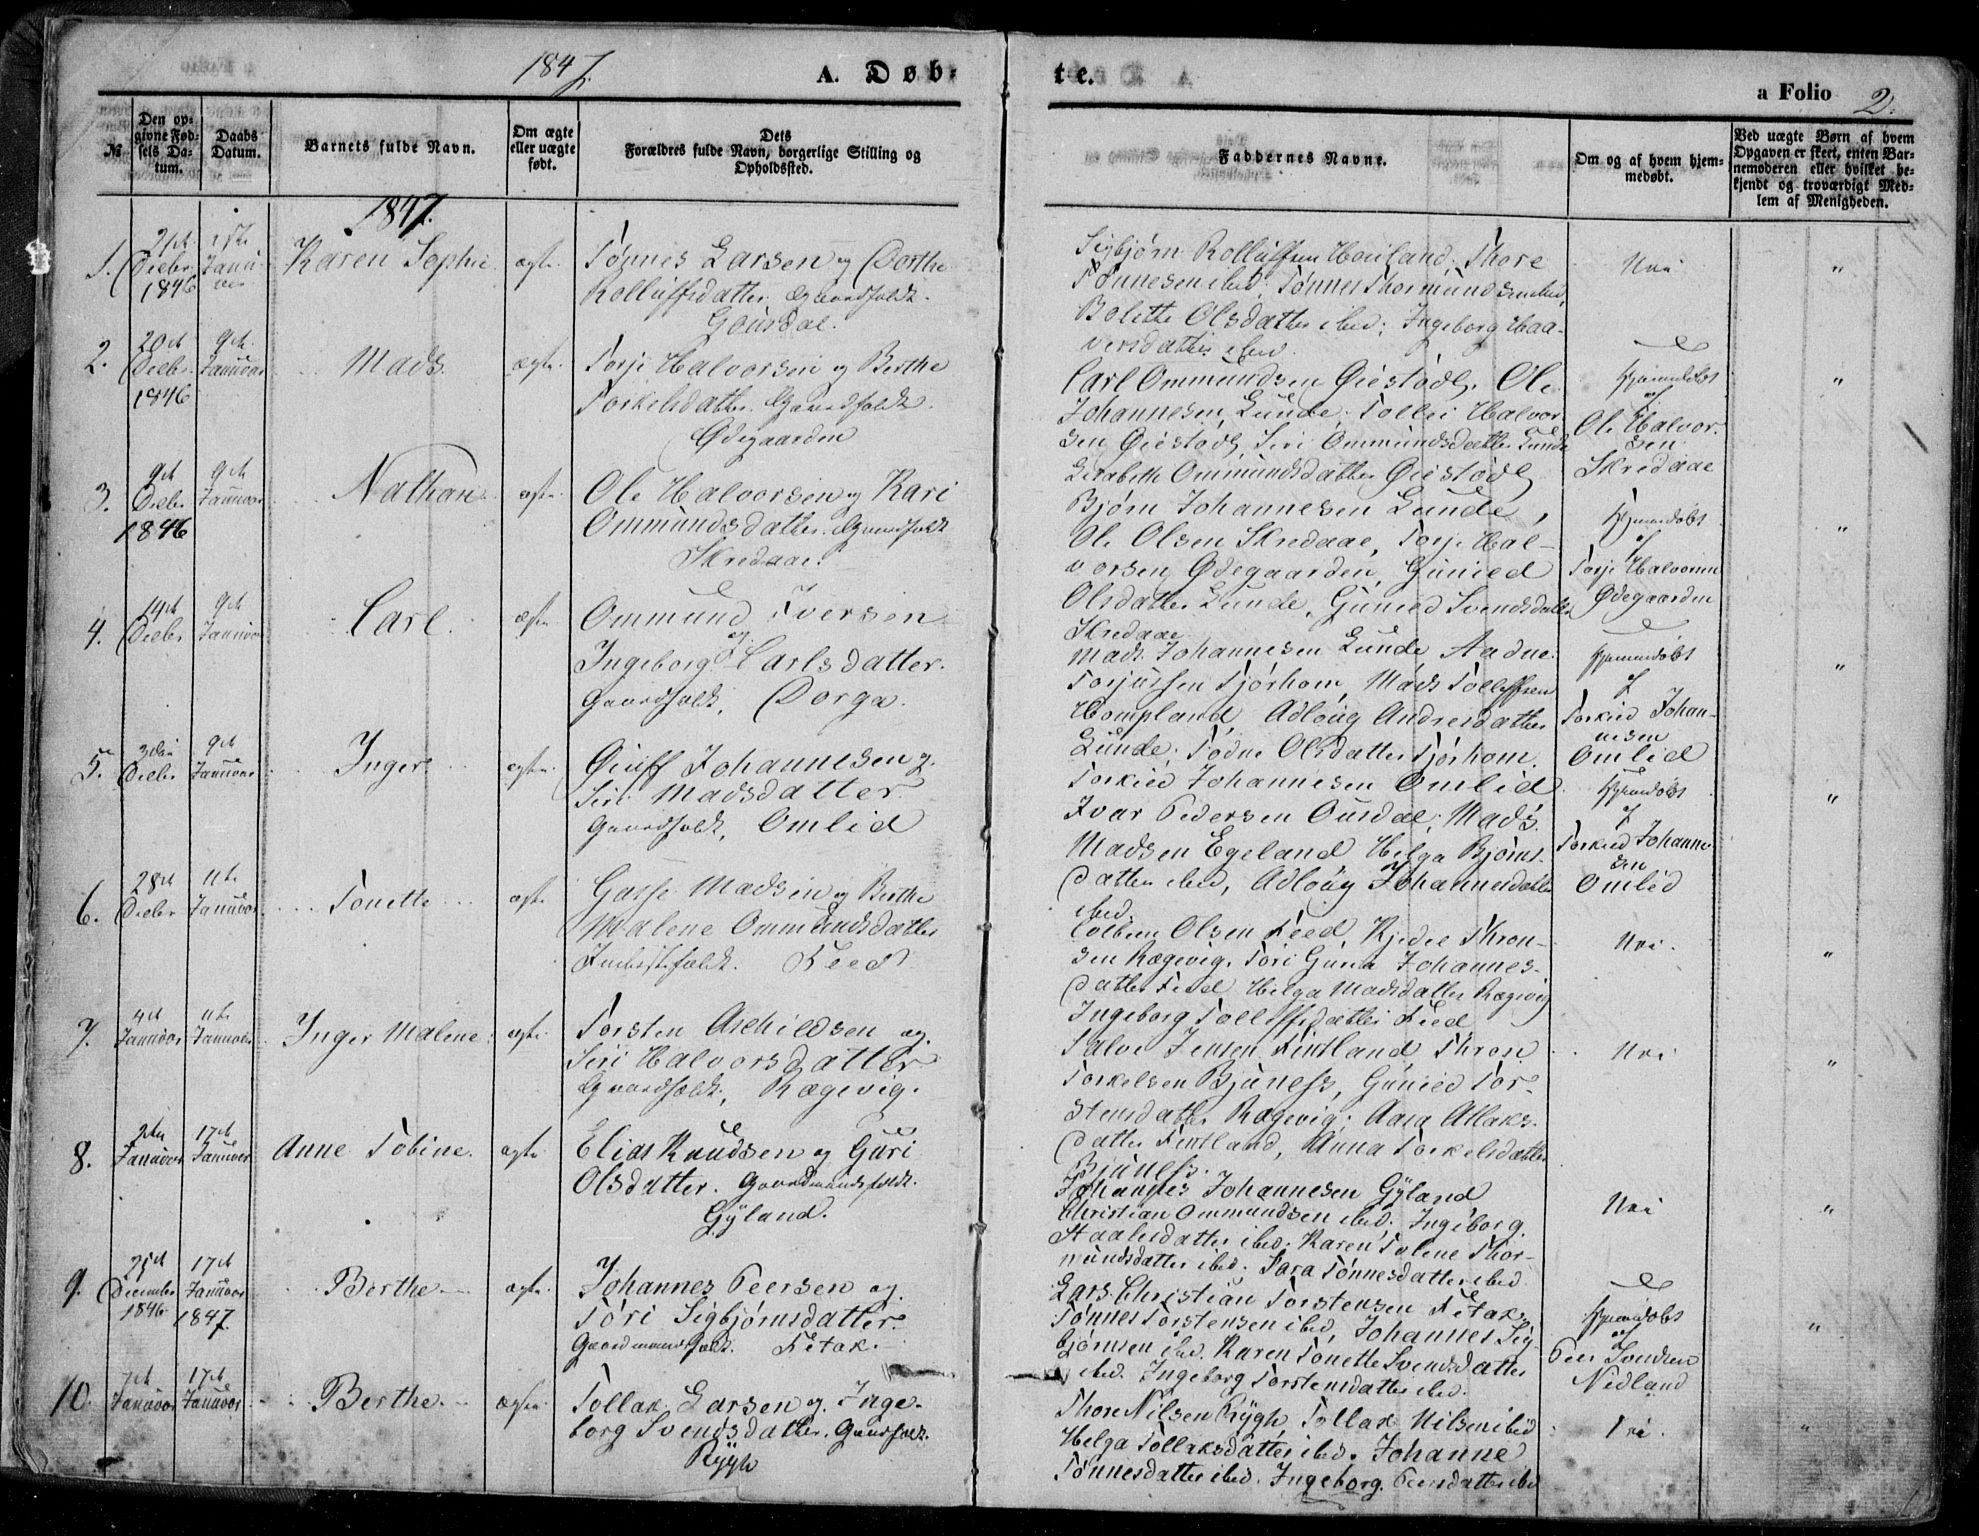 1847.
A. Døb-
te.
a Folio 2.
№
Den op-
givne Fød-
sels Da-
tum.
Daabs
Datum.
Barnets fulde Navn.
Om ægte
eller uægte
født.
Dets
Forældres fulde Navn, borgerlige Stilling og
Opholdssted.
Faddernes Navne.
Om og af hvem hjem-
medøbt.
Ved uægte Børn af hvem
Opgaven er skeet, enten Bar-
nemoderen eller hvilket be-
kjendt og troværdigt Med-
lem af Menigheden.
1847.
1.
21de
Decbr
1846
1ste
Janu-
ar
Karen Sophie
ægte
Tønnes Larsen og Dorthe
Rolluffsdatter. Gaardfolk.
Gousdal.
Sigbjørn Rolluffsen Houland, Thore
Tønnesen ibid; Tønnes Thormundsen ibid,
Bolette Olsdatter ibid; Ingeborg Haa-
versdatter ibid
Nei
"
2.
20de
Decbr
1846
9de
Januar
Mads.
ægte
Torje Halvorsen og Berthe
Torkelsdatter. Gaardfolk.
Ødegaarden
Carl Ommundsen Giestøl, Ole
Johannesen, Lunde, Tollei Halvor
sen Giestøl, Siri Ommundsdatter Lunde
Lisabeth Ommundsdatter Giestøl
Hjemmedøbt
af
Ole Halvor-
sen
Skredaae
"
3.
9de
Decbr
1846
9de
Januar
Nathan
ægte
Ole Halvorsen og Kari
Ommundsdatter. Gaardfolk
Skredaae.
Bjørn Johannesen Lunde,
Ole Olsen Skredaae, Torje Hal-
vorsen Ødegaarden, Gunild
Olsdatter Lunde, Gunild Svendsdatter
Skredaae
Hjemmedøbt
af
Torje Halvorsen
Ødegaarden
"
4.
14de
Decbr
9de
Januar
Carl
ægte
Ommund Iversen
og
Ingeborg Carlsdatter.
Gaardfolk, Dorga.
Mads Johannesen Lunde, Aadne
Torjussen Tjørhom, Mads Tolleffsen
Hompland, Adloug Andersdatter
Lunde; Todne Olsdatter Tjørhom.
Hjemmedøbt
af
Torkild Johan-
nesen
Omlid
"
5.
3die
Decbr
9de
Januar
Inger
ægte
Giuff Johannesen og
Siri Madsdatter
Gaardfolk, Omlid
Torkild Johannesen Omlid
Ivar Pedersen Ousdal; Mads
Madsen Egeland, Helga Bjørns-
datter ibid, Adloug Johannesdatter
ibid.
Hjemmedøbt
af
Torkild Johanne
sen
Omlid
"
6.
28de
Decbr
11te
Januar
Tonette
ægte
Gasse Madsen og Berthe
Malene Ommundsdatter
Feed
Olsen Feed, Kjedel Thron-
sen Rægevig, Tori Guria Johannes-
datter Feed, Helga Madsdatter Rægevig
Ingeborg Tolleffsdatter Feed
Nei.
"
7.
4de
Januar
11te
Januar
Inger Malene
ægte
Torsten Aschildsen og
Siri Halvorsdatter
Gaardfolk, Rægevig.
Salve Jensen Fintland, Thron
Torkelsen Bjuness, Gunild Tor-
stensdatter Rægevig; Aasa Atlaks-
datter Fintland, Anna Torkelsdatter
Bjuness.
Nei
"
8.
2den
Januar
17de
Januar
Anne Tobine.
ægte
Elias Knudsen og Guri
Olsdatter. Gaardmandsfolk.
Gyland.
Johannes Johannesen Gyland
Christian Ommundsen ibid, Ingeborg
Staalesdatter ibid. Karen Tolene Thor-
mundsdatter ibid. Sara Tønnesdatter ibid
Nei
"
9.
25de
December
1846
17de
Januar
1847.
Berthe
ægte
Johannes Peersen og
Tori Sigbjørnsdatter.
Gaardmandsfolk. Fetak.
Lars Christian Torstensen Fetak,
Tønnes Torstensen ibid, Johannes Sig-
bjørnsen ibid. Karen Tonette Svendsdatter
ibid. Ingeborg Torstensdatter ibid.
Hjemmedøbt
af
Peer Svendsen
Nedland
"
10.
7de
Januar
17de
Januar
Berthe.
ægte
Tollak Larsen og Inge-
borg Svendsdatter. Gaardfolk.
Rygh
Thore Nilsen Rygh, Tollak Nilsen ibid
Helga Tollaksdatter ibid. Johanne
Tønnesdatter ibid. Ingeborg Peersdatter ibid
Nei.
"